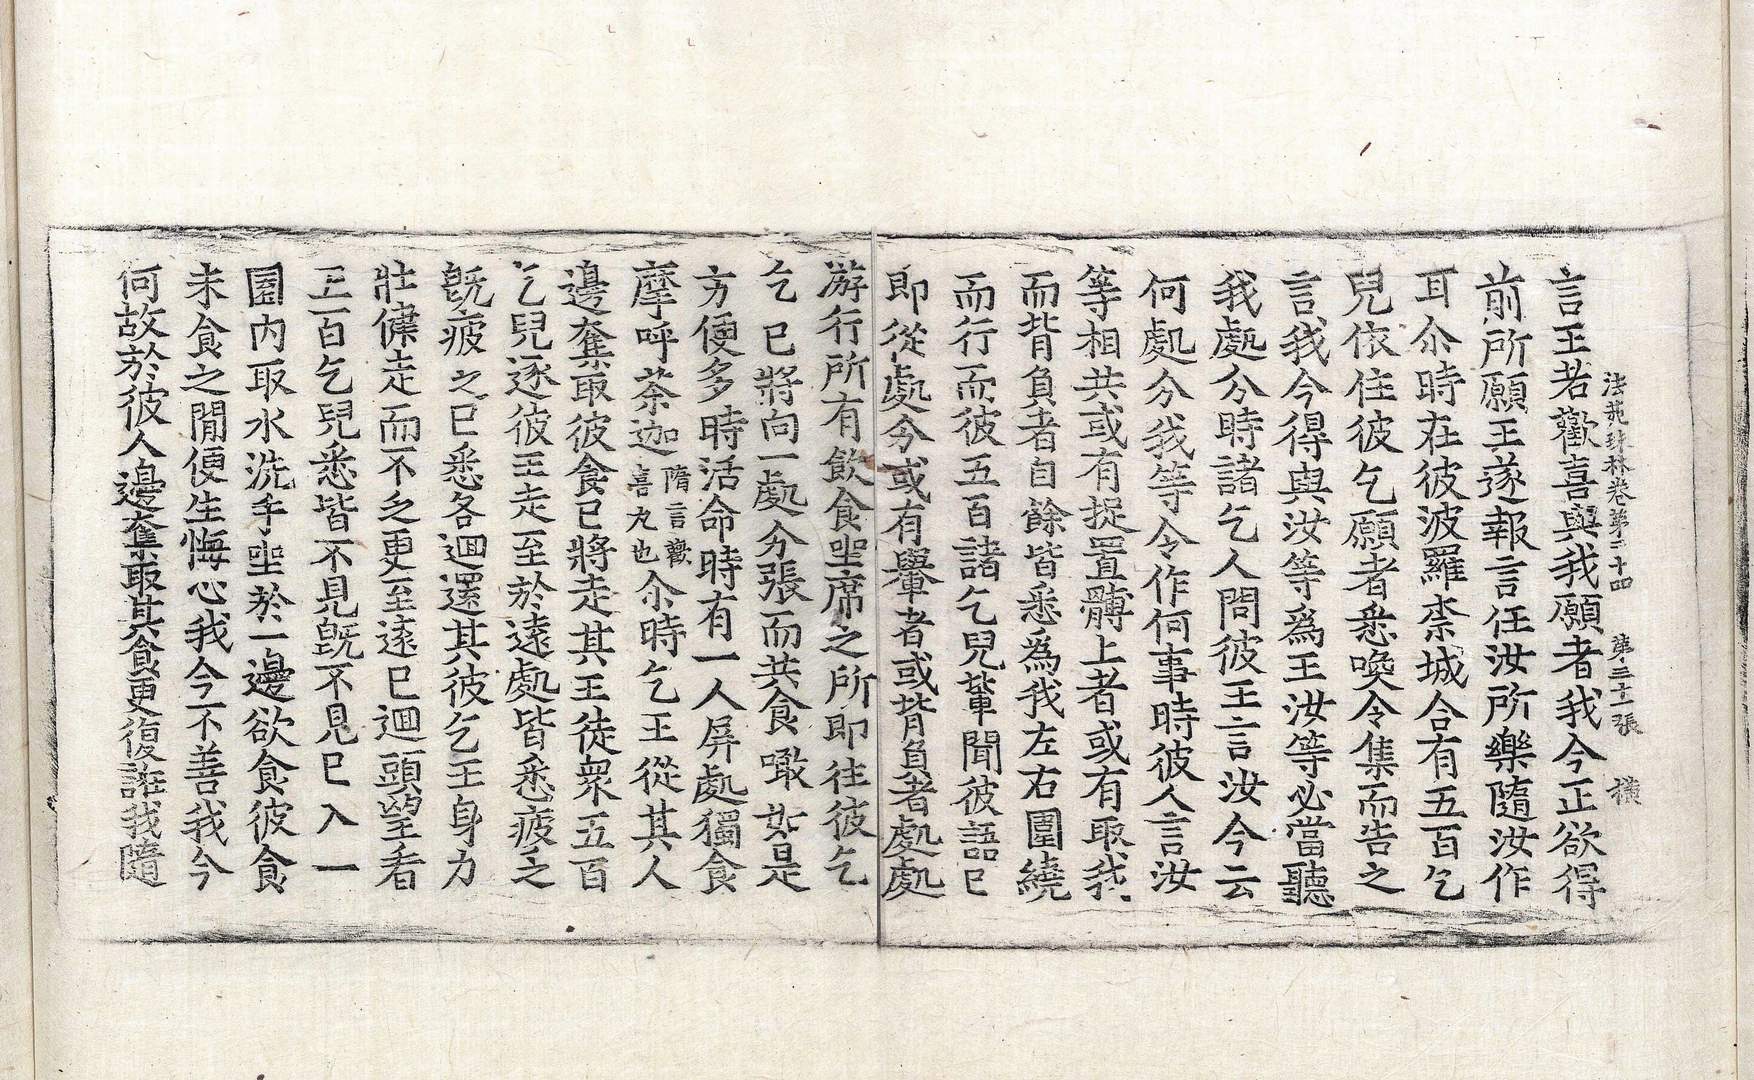 法苑珠林卷第三十四 第三十一張 橫
言王若歡喜與我願者我今正欲得
前所願王遂報言任汝所樂隨汝作
耳尒時在彼波羅柰城合有五百乞
兒依住彼乞願者悉喚令集而告之
言我今得與汝等爲王汝等必當聽
我處分時諸乞人問彼王言汝今云
何處分我等令作何事時彼人言汝
等相共或有捉置髆上者或有取我
而背負者自餘皆悉爲我左右圍繞
而行而彼五百諸乞兒輩聞彼語已
即從處分或有轝者或背負者處處
游行所有飲食坐席之所即往彼乞
乞已將向一處分張而共食噉如是
方便多時活命時有一人屏處獨食
摩呼荼迦隋言歡喜丸也尒時乞王從其人
邊奪取彼食已將走其王徒衆五百
乞兒逐彼王走至於遠處皆悉疲乏
旣疲乏已悉各迴還其彼乞王身力
壯健走而不乏更至遠已迴頭望看
五百乞兒悉皆不見旣不見已入一
園內取水洗手坐於一邊欲食彼食
未食之間便生悔心我今不善我今
何故於彼人邊奪取其食更復誑我隨